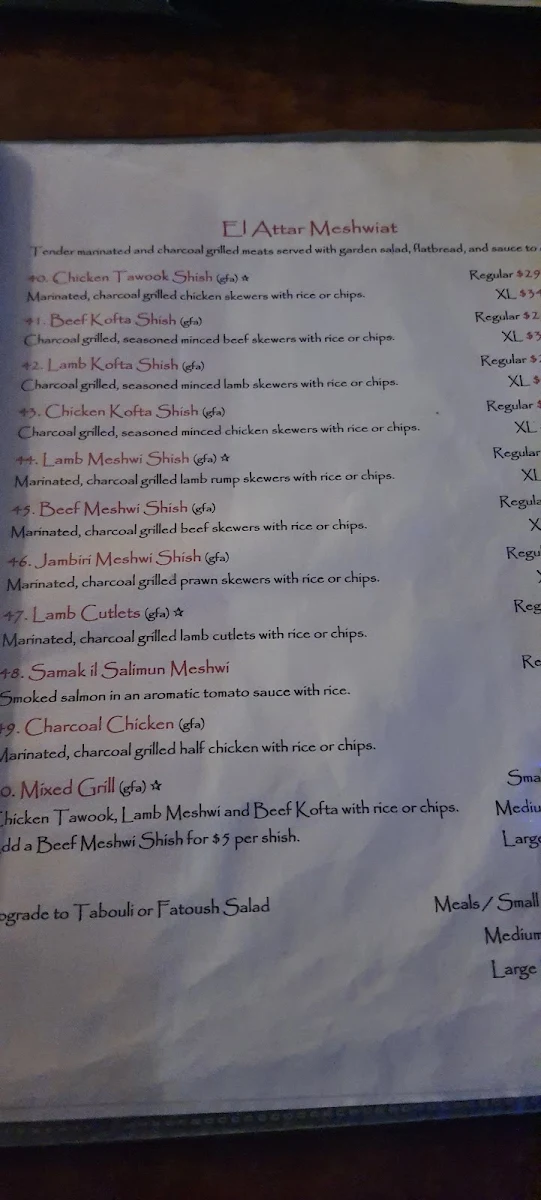 El Attar Meshwiat
Tender marinated and charcoal grilled meats served with garden salad, flatbread, and sauce to
40. Chicken Tawook Shish (gfa) ☆ Regular $29
Marinated, charcoal grilled chicken skewers with rice or chips. XL $34
41. Beef Kofta Shish (gfa) Regular $2
Charcoal grilled, seasoned minced beef skewers with rice or chips. XL $3
42. Lamb Kofta Shish (gfa) Regular $2
Charcoal grilled, seasoned minced lamb skewers with rice or chips. XL $
43. Chicken Kofta Shish (gfa) Regular $
Charcoal grilled, seasoned minced chicken skewers with rice or chips. XL
44. Lamb Meshwi Shish (gfa) ☆ Regular
Marinated, charcoal grilled lamb rump skewers with rice or chips. XL
45. Beef Meshwi Shish (gfa) Regula
Marinated, charcoal grilled beef skewers with rice or chips. X
46. Jambiri Meshwi Shish (gfa) Regu
Marinated, charcoal grilled prawn skewers with rice or chips.
47. Lamb Cutlets (gfa) ☆ Reg
Marinated, charcoal grilled lamb cutlets with rice or chips.
48. Samak il Salimun Meshwi Re
Smoked salmon in an aromatic tomato sauce with rice.
49. Charcoal Chicken (gfa)
Marinated, charcoal grilled half chicken with rice or chips.
0. Mixed Grill (gfa) ☆ Sma
Chicken Tawook, Lamb Meshwi and Beef Kofta with rice or chips. Mediu
dd a Beef Meshwi Shish for $5 per shish. Large
pgrade to Tabouli or Fatoush Salad Meals / Small
Medium
Large